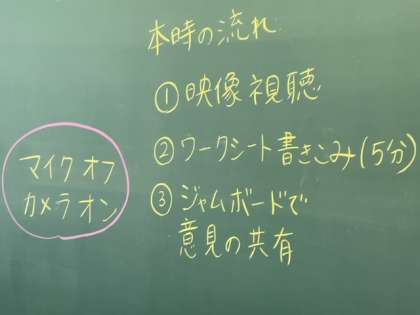 本時の流れ
①映像視聴
②ワークシート書きこみ(5分)
③ジャムボードで
意見の共有
マイクオフ
カメラオン